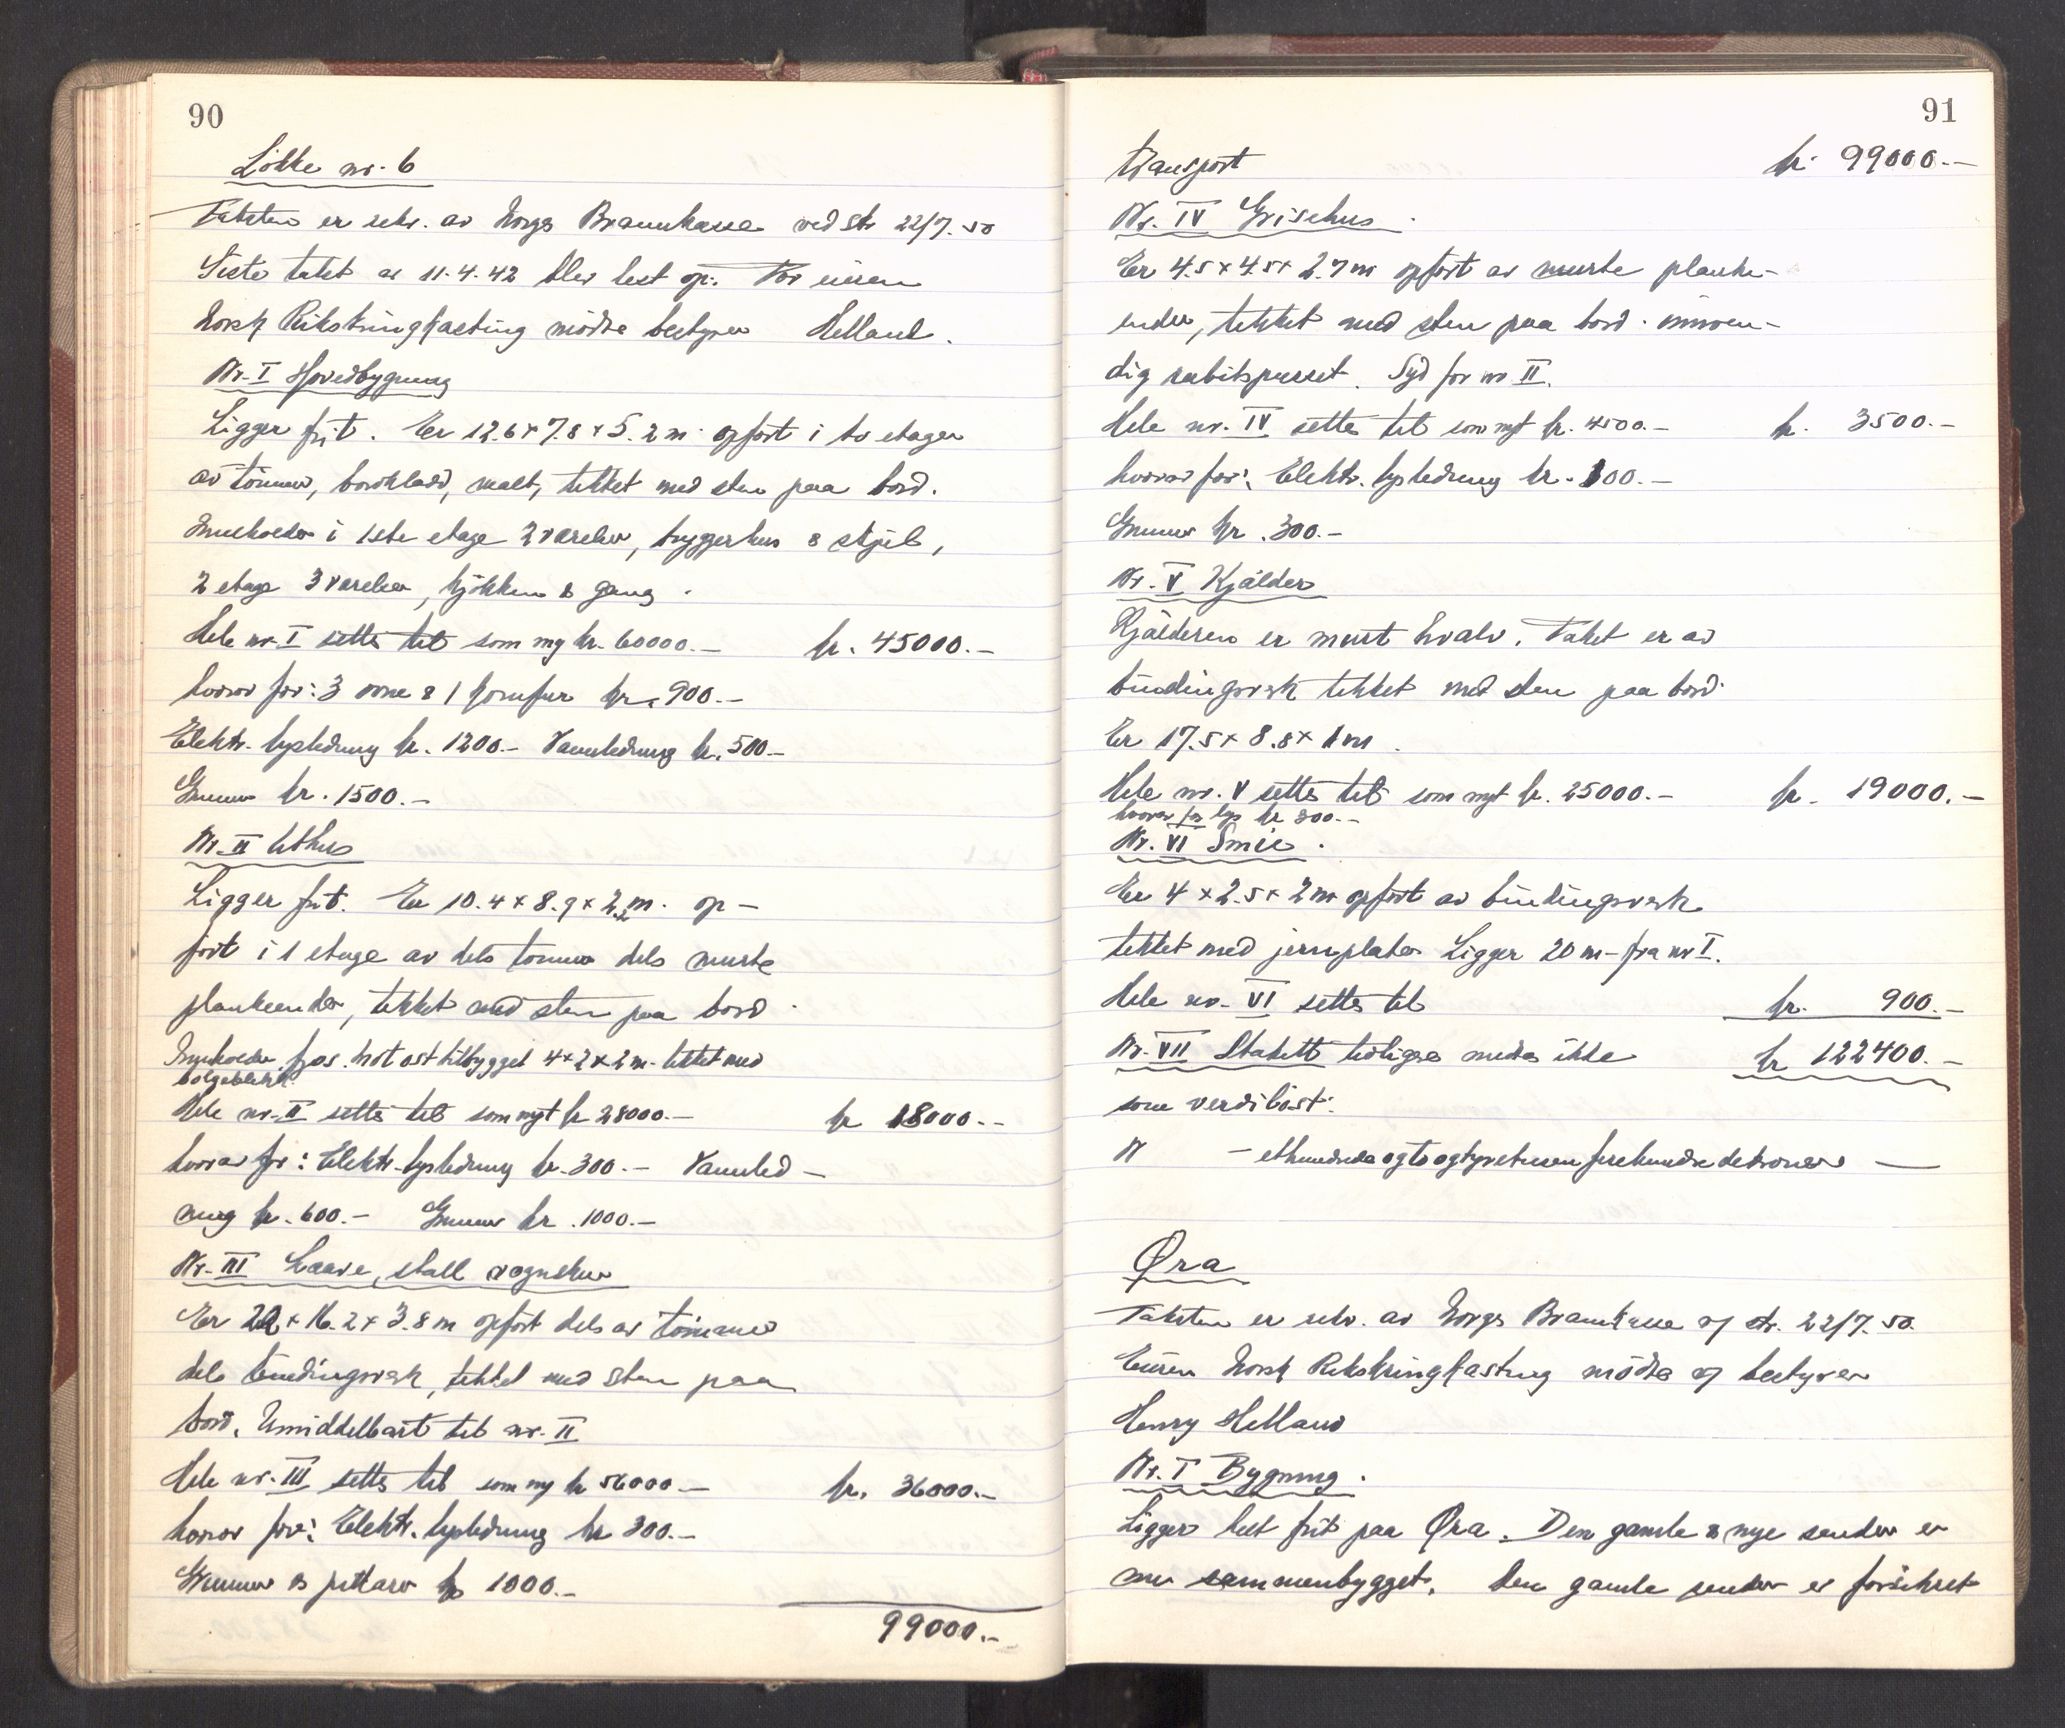 90
Lökke nr. 6
Taksten er rekv. av Norges Brannkasse ved skr 22/7.50
Siste takst av 11.4.42 blev lest op. For eieren
Norsk Rikskringkasting mötte bestyrer Helland.
Nr. I Hovedbygning
Ligger frit. Er 12.6 x 7.8 x 5.2 m opfört i to etager
av tömmer, bordkladd, malt, tekket med sten paa bord.
Inneholder i 1ste etage 2 værelser, bryggerhus & skjul,
2 etage 3 værelser, kjökken & gang.
Hele nr. I settes til som ny kr. 60000.- kr. 45000.-
hvorav for: 3 ovne & 1 komfur kr. 900.-
Elektr. lysledning kr. 1200.- Vannledning kr. 500.-
Grunnmur kr. 1500.-
Nr. II Uthus
Ligger frit. Er 10.4 x 8.9 x 2.2 m. op-
fört i 1 etage av dels tömmer dels murte
plankeender, tekket med sten paa bord.
Inneholder fjøs. Mot ost tilbygget 4 x 2 x 2 m. tekket med
bölgeblikk
Hele nr. II settes til som nyt kr 28000.- kr 18000.-
hvorav for: Elektr. lysledning kr. 300.- Vannled-
ning kr. 600.- Grunnmur kr. 1000.-
Nr. III Laave, stall vognskur
Er 22 x 16.2 x 3.8 m opfört dels av tömmer
dels bindingsverk, tekket med sten paa
bord. Umiddelbart til nr. II
Hele nr. III settes til som ny kr 56000.- kr. 36000.-
hvorav for: Elektr. lysledning kr 300.-
Grunnmur & pillarer kr 1000.-
99000.-
91
Transport kr. 99000.-
Nr. IV Grisehus.
Er 4.5 x 4.5 x 2.7 m opfört av murte planke-
ender, tekket med sten paa bord. innven-
dig rabitspusset. Syd for nr II.
Hele nr. IV settes til som nyt kr. 4500.- kr. 3500.-
hvorav for: Elektr. lysledning kr. 100.-
Grunnmur kr. 300.-
Nr. V Kjälder
Kjälderen er murt hvalv. Taket er av
bindingsverk tekket med sten paa bord.
Er 17.5 x 8.8 x 1 m.
Hele nr. V settes til som nyt kr. 25000.- kr. 19000.-
hvorav for lys kr 200.-
Nr. VI Smie.
Er 4 x 2.5 x 2 m opfört av bindingsverk
tekket med jernplater Ligger 20 m fra nr I.
Hele nr. VI settes til kr. 900.-
Nr. VII Stakitt tidligere medtas ikke kr 122400.-
som verdilöst.
- ethundrede og to og tyvetusen firehundrede kroner -
Øra
Taksten er rekv. av Norges Brannkasse og skr. 22/7.50.
Eieren Norsk Rikskringkasting mödte og bestyrer
Henry Helland
Nr. I Bygning.
Ligger helt frit paa Øra. Den gamle & nye sender er
nu sammenbygget. Den gamle sender er forsikret